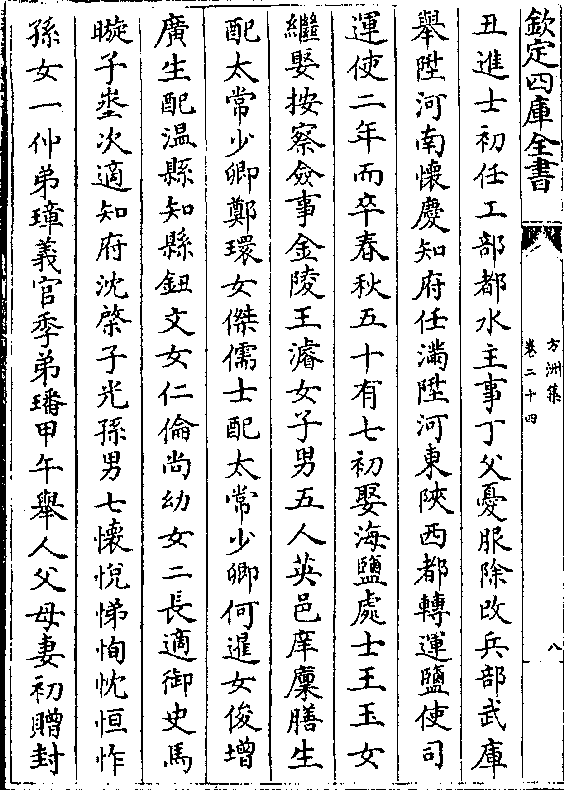 欽定四庫全書
方洲集
卷二十四
八
丑進士初任工部都水主事丁父憂服除改兵部武庫
舉陞河南懷慶知府任滿陞河東陜西都轉運鹽使司
運使二年而卒春秋五十有七初娶海鹽處士王玉女
繼娶按察僉事金陵王濬女子男五人英邑庠廩膳生
配太常少卿鄭環女傑儒士配太常少卿何暹女俊增
廣生配温縣知縣鈕文女仁倫尚幼女二長適御史馬
㬕子垄次適知府沈棨子光孫男七懷悅悌恂忱恒怍
孫女一仲弟璋義官季弟璠甲午舉人父母妻初贈封